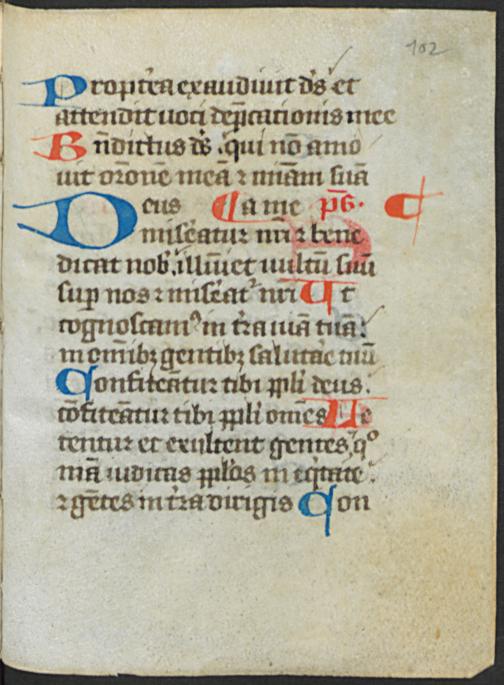 102
Propt̃ea exaudiuit ds̃ et
attendit uoci dep̃cationis mee
Bñdictus ds̃ . qui nõ amo
uit or̃onẽ meã ⁊ miãm suã
Deus ¶ a me ps̃. ¶
misẽatur nr̃i ⁊ bene
dicat nob᷒ . illũĩet uultũ suũ
sup nos ⁊ misẽat᷒ nr̃i Ut
cognoscam᷒ in t̃ra uiã tuã :
in om̃ibꝫ gentibꝫ salutaẽ tuũ
Confiteãtur tibi ppl̃i deus :
cõfiteãtur tibi ppl̃i om̃es Le
tentur et exultent gentes , qo
niã iudicas ppl̃os in eq̃tate .
⁊ gẽtes in t̃ra dirigis Con